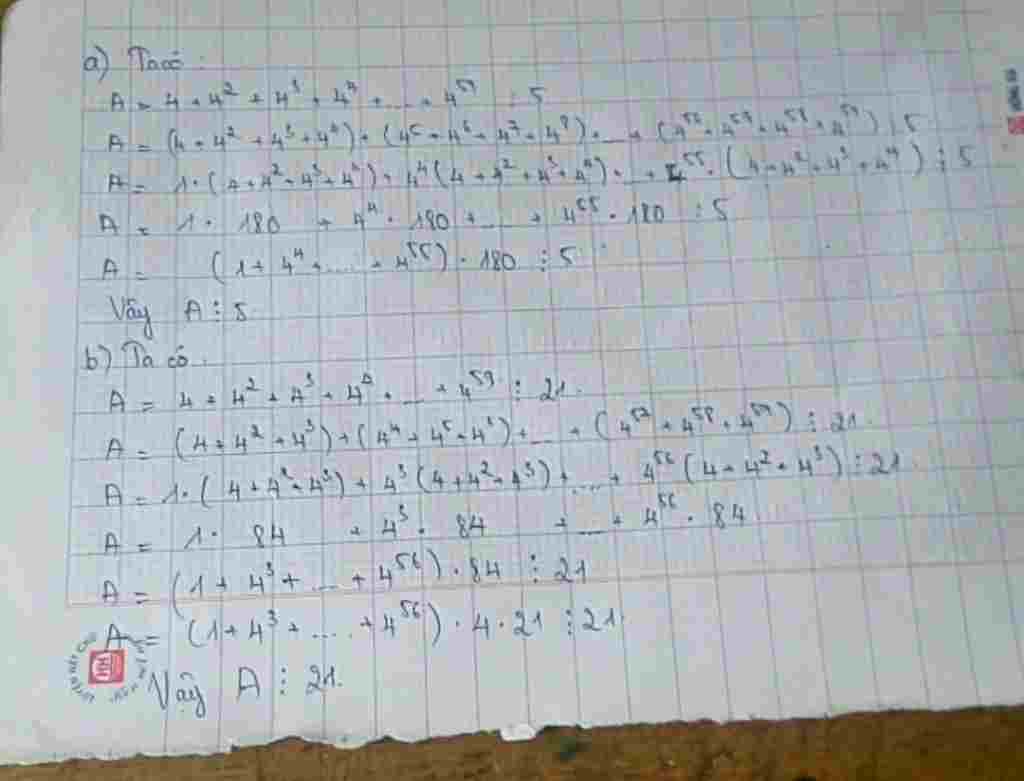 a) Ta có:
A = 4 + 4² + 4³ + 4⁴ + ... + 4⁵⁹ ⋮ 5
A = (4 + 4² + 4³ + 4⁴) + (4⁵ + 4⁶ + 4⁷ + 4⁸) + ... + (4⁵⁶ + 4⁵⁷ + 4⁵⁸ + 4⁵⁹) ⋮ 5
A = 1 · (4 + 4² + 4³ + 4⁴) + 4⁴ (4 + 4² + 4³ + 4⁴) + ... + 4⁵⁵ · (4 + 4² + 4³ + 4⁴) ⋮ 5
A = 1 · 180 + 4⁴ · 180 + ... + 4⁵⁵ · 180 ⋮ 5
A = (1 + 4⁴ + .... + 4⁵⁵) · 180 ⋮ 5
Vậy A ⋮ 5
b) Ta có:
A = 4 + 4² + 4³ + 4⁴ + ... + 4⁵⁹ ⋮ 21.
A = (4 + 4² + 4³) + (4⁴ + 4⁵ + 4⁶) + ... + (4⁵⁷ + 4⁵⁸ + 4⁵⁹) ⋮ 21.
A = 1 · (4 + 4² + 4³) + 4³ (4 + 4² + 4³) + ... + 4⁵⁶ (4 + 4² + 4³) ⋮ 21
A = 1 · 84 + 4³ · 84 + ... + 4⁵⁶ · 84
A = (1 + 4³ + ... + 4⁵⁶) · 84 ⋮ 21
A = (1 + 4³ + .... + 4⁵⁶) · 4 · 21 ⋮ 21
Vậy A ⋮ 21.